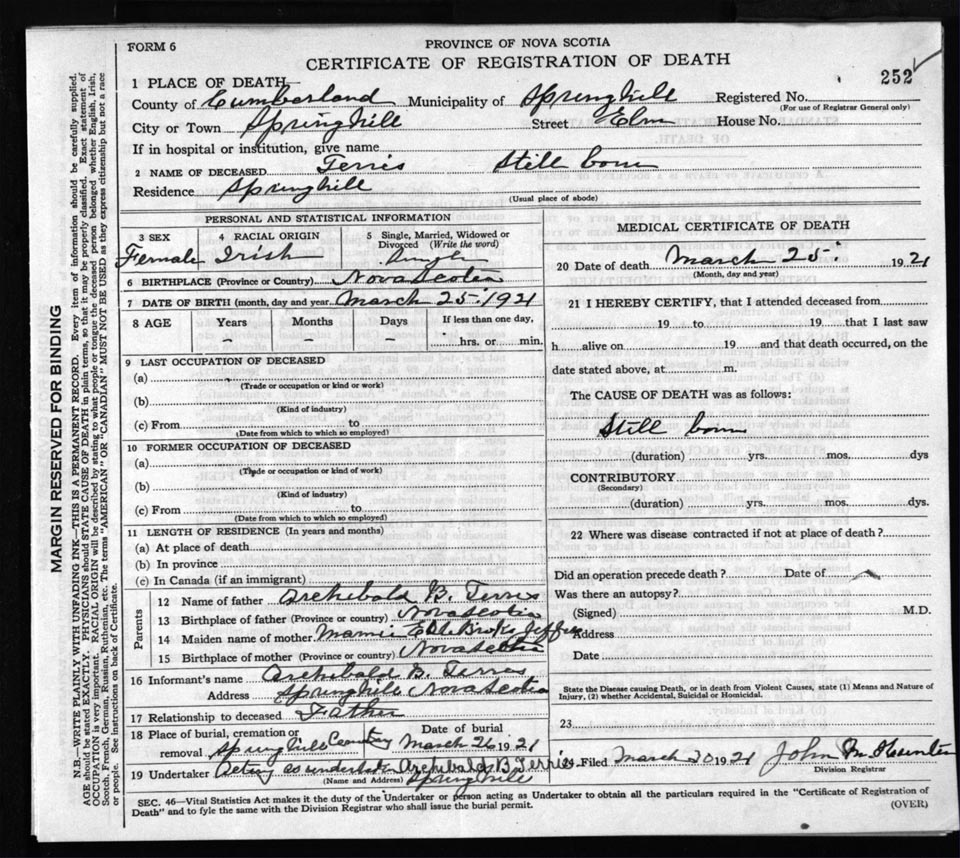 FORM 6
PROVINCE OF NOVA SCOTIA
CERTIFICATE OF REGISTRATION OF DEATH
252
1 PLACE OF DEATH
County of Cumberland Municipality of Springhill Registered No.
(For use of Registrar General only)
City or Town Springhill Street Elm House No.
If in hospital or institution, give name
2 NAME OF DECEASED Terris Still born
Residence Springhill
(Usual place of abode)
MARGIN RESERVED FOR BINDING
N.B.—WRITE PLAINLY WITH UNFADING INK—THIS IS A PERMANENT RECORD. Every item of information should be carefully supplied.
AGE should be stated EXACTLY. PHYSICIANS should STATE CAUSE OF DEATH in plain terms, so that it may be properly classified. Exact statement of
OCCUPATION is very important. RACIAL ORIGIN will be described by stating to what people or tongue the deceased person belonged whether English, Irish,
Scotch, French, German, Russian, Ruthenian, etc. The terms "AMERICAN" OR "CANADIAN" MUST NOT BE USED as they express citizenship but not a race
or people. See instructions on back of Certificate.
PERSONAL AND STATISTICAL INFORMATION
3 SEX 4 RACIAL ORIGIN 5 Single, Married, Widowed or
Divorced (Write the word)
Female Irish Single
6 BIRTHPLACE (Province or Country) Nova Scotia
7 DATE OF BIRTH (month, day and year March 25. 1921
8 AGE Years Months Days If less than one day,
– – – hrs. or min.
9 LAST OCCUPATION OF DECEASED
(a)
(Trade or occupation or kind or work)
(b)
(Kind of industry)
(c) From to
(Date from which to which so employed)
10 FORMER OCCUPATION OF DECEASED
(a)
(Trade or occupation or kind of work)
(b)
(Kind of industry)
(c) From to
(Date from which to which so employed)
11 LENGTH OF RESIDENCE (In years and months)
(a) At place of death
(b) In province
(c) In Canada (if an immigrant)
Parents
12 Name of father Archibald B. Terris
13 Birthplace of father (Province or country) Nova Scotia
14 Maiden name of mother Mamie
15 Birthplace of mother (Province or country) Nova Scotia
16 Informant's name Archibald B. Terris
Address Springhill Nova Scotia
17 Relationship to deceased Father
18 Place of burial, cremation or Date of burial
removal Springhill March 26 1921
19 Undertaker Acting as undertaker Archibald B Terris
(Name and Address) Springhill
MEDICAL CERTIFICATE OF DEATH
20 Date of death March 25. 1921
(Month, day and year)
21 I HEREBY CERTIFY, that I attended deceased from
19 to 19 that I last saw
h alive on 19 and that death occurred, on the
date stated above, at m.
The CAUSE OF DEATH was as follows:
Still born
(duration) yrs. mos. dys
CONTRIBUTORY
(Secondary)
(duration) yrs. mos. dys.
22 Where was disease contracted if not at place of death?
Did an operation precede death? Date of
Was there an autopsy?
(Signed) M.D.
Address
Date
State the Disease causing Death, or in death from Violent Causes, state (1) Means and Nature of
Injury, (2) whether Accidental, Suicidal or Homicidal.
23
Filed March 20 1921 John M Hunter
Division Registrar
SEC. 46—Vital Statistics Act makes it the duty of the Undertaker or person acting as Undertaker to obtain all the particulars required in the "Certificate of Registration of
Death" and to fyle the same with the Division Registrar who shall issue the burial permit.
(OVER)